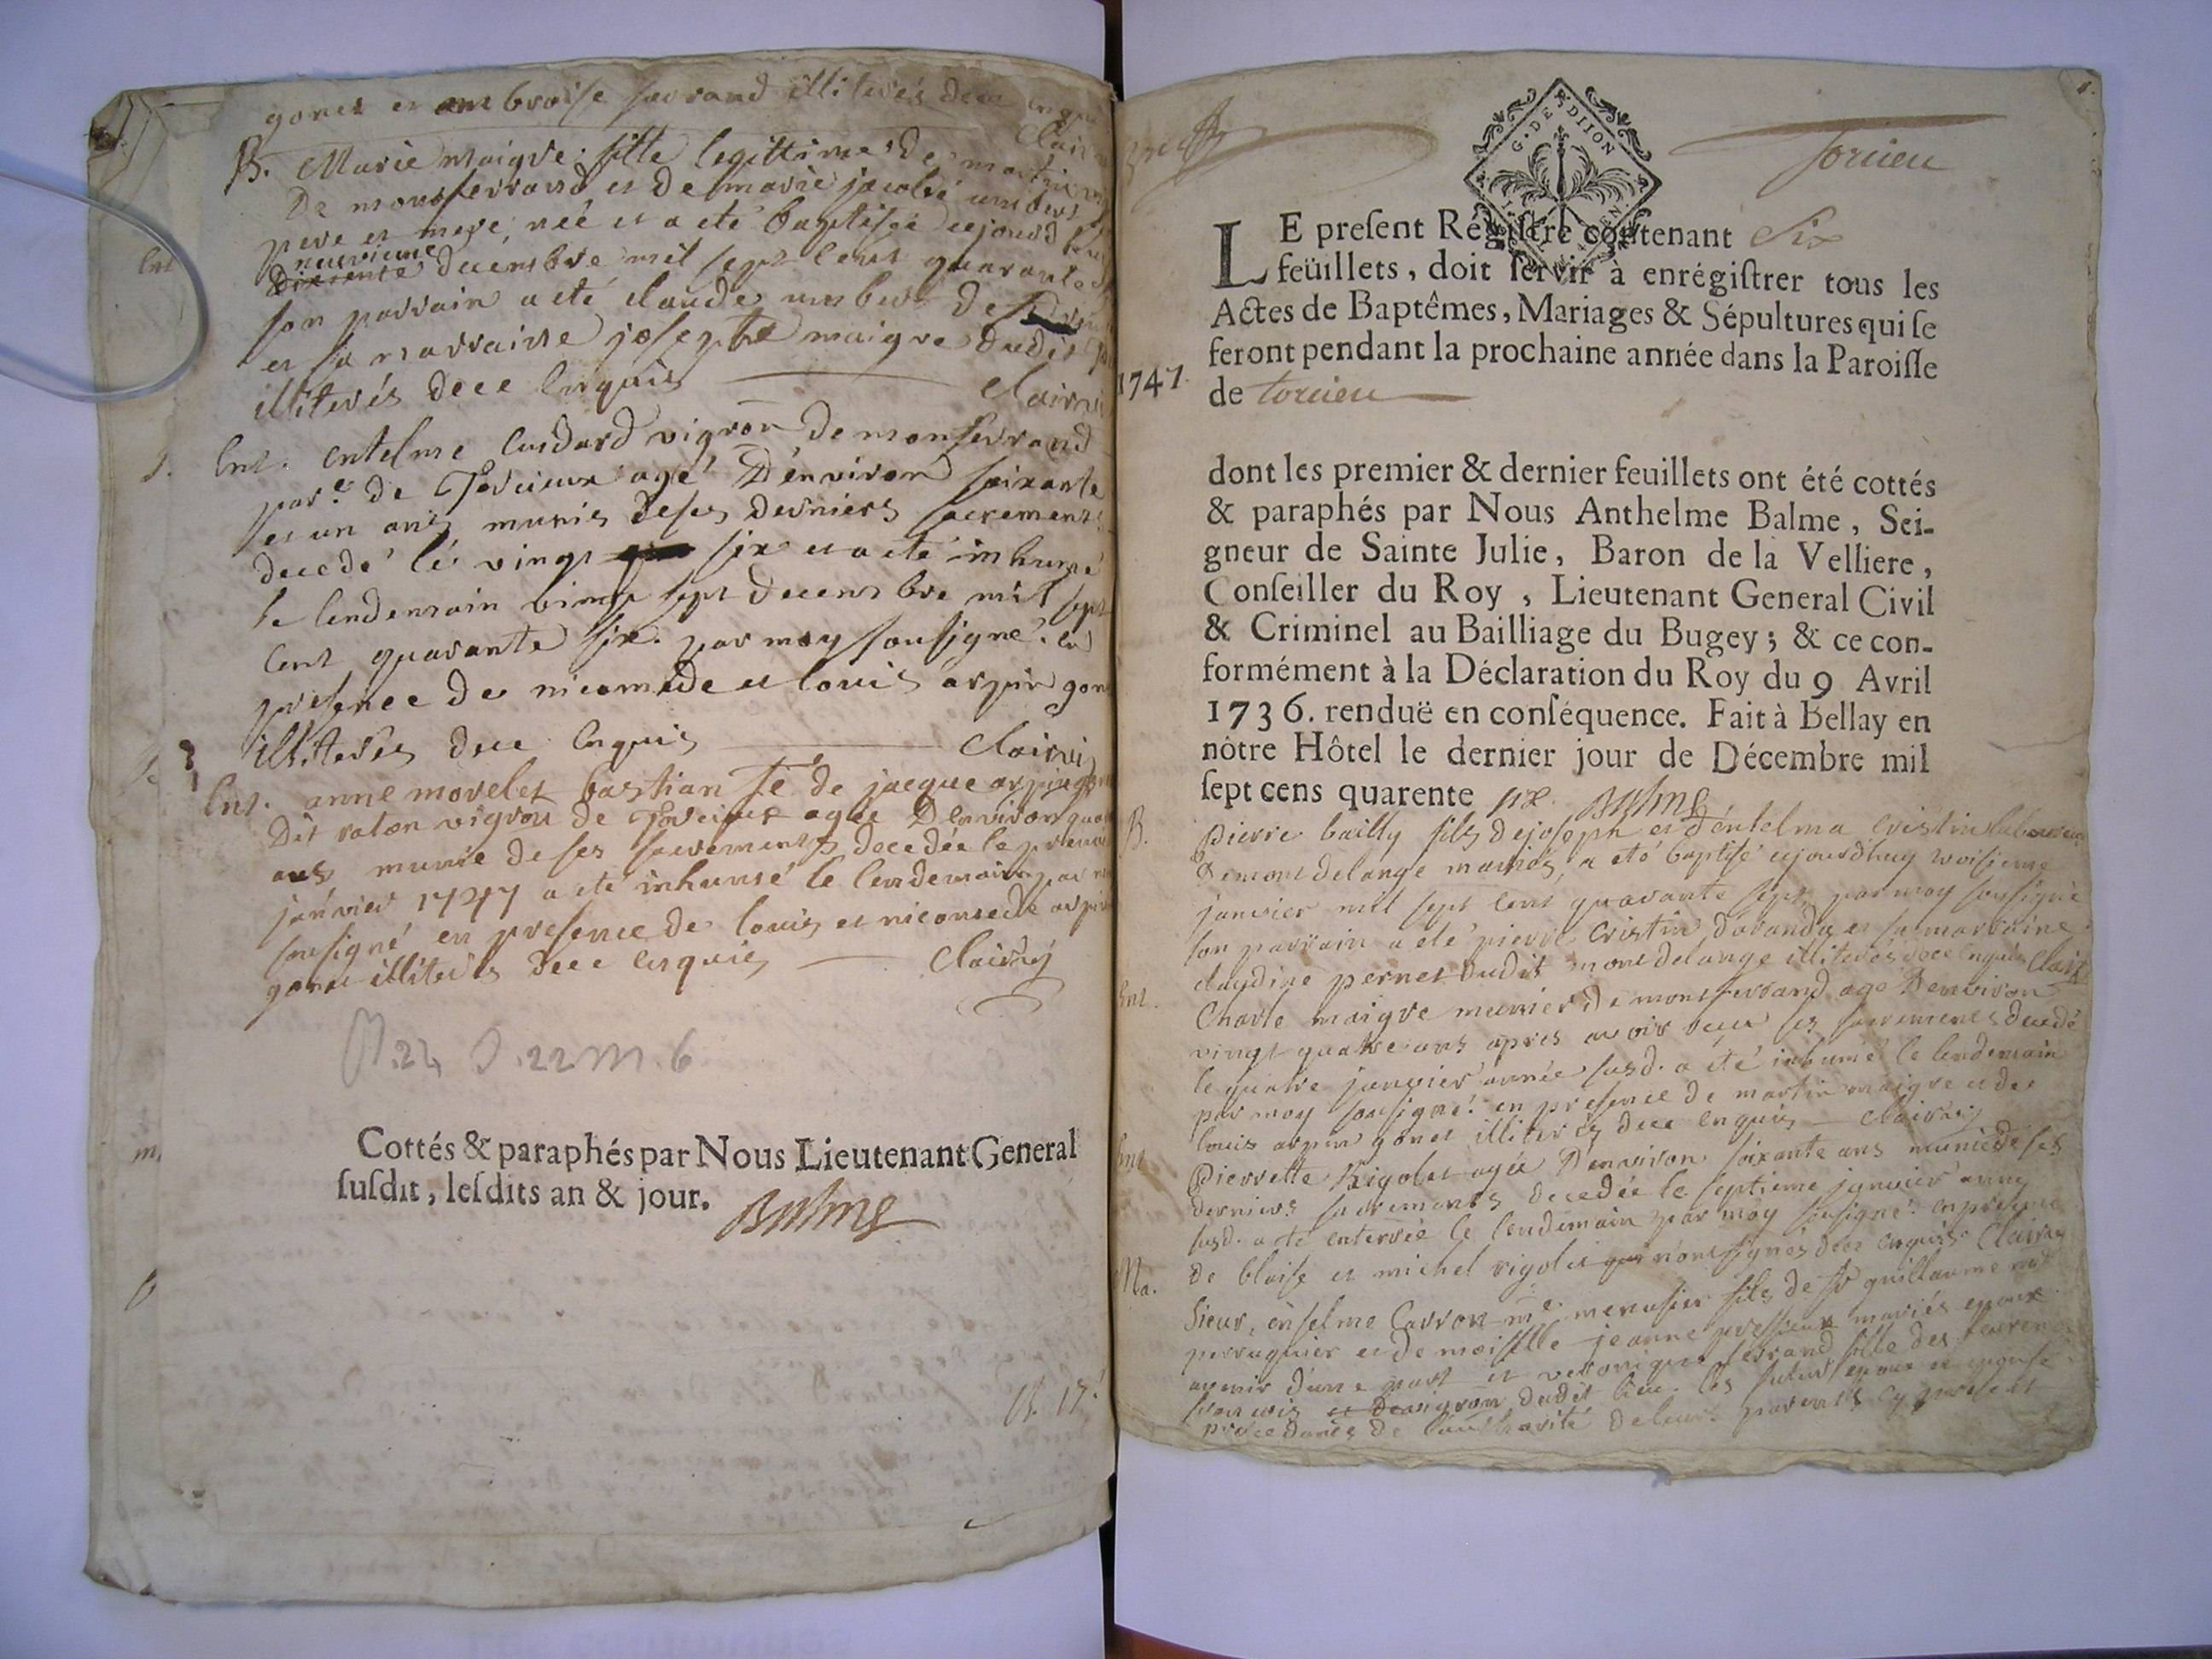 gonet et ambroise ferrand illiterés de ce enquis
Clairvi
B. Marie maigre fille legittime de martin
De monferrand et de marie jacolié umbert
pere et mere, néé et a eté baptisée cejourd
neuvieme
decembre mil sept cent quarante
son parrain a eté claude umbert de
et sa marraine josephte maigre dudit
illiterés dece Enquis Clairvi
Ent. entelme cusdard vigron De monferrand
par.e de Torcieux agé D'environ soixante
et un ans munis deses derniers sacrements
decedé lé vingt six et a eté inhumé
le lendemain vingt sept decembre mil sept
Cent quarante six. par moy sousigné. en
presence de nicomede et louis arpin gon
illiterés dece enquis Clairvi
Ent. anne morelet bastian fe de jacque arpin gon
Dit raton vigron de Torcieux agée D'environ
ans munie de ses sacrements decedée le premier
janvier 1747 a eté inhumé le lendemain par
sousigné en presence de louis et nicomede arpin
gone illiterés dece enquis Clairvy
B. 22 S. 22 M. 6
Cottés & paraphés par Nous Lieutenant General
susdit, lesdits an & jour. Balme
B. 17.
1.
G. DE DIJON
Torcieu
LE present Régistre contenant Six
feüillets, doit servir à enrégistrer tous les
Actes de Baptêmes, Mariages & Sépultures qui se
feront pendant la prochaine année dans la Paroisse
1747.
de torcieu
dont les premier & dernier feuillets ont été cottés
& paraphés par Nous Anthelme Balme, Sei-
gneur de Sainte Julie, Baron de la Velliere,
Conseiller du Roy, Lieutenant General Civil
& Criminel au Bailliage du Bugey; & ce con-
formément à la Déclaration du Roy du 9 Avril
1736. renduë en conséquence. Fait à Bellay en
nôtre Hôtel le dernier jour de Décembre mil
sept cens quarente six. Balme
B. pierre bailly fils de joseph et d'entelma cristin laboureur
De mont delange mariés, a eté baptisé cejourdhuy troisieme
janvier mil sept cent quarante sept par moy sousigné
son parrain a eté pierre cristin d'arandas et sa marraine
claydine pernet dudit mont delange illiterés dece enquis Clair
Ent. Charle maigre meunier de montferrand agé D'environ
vingt quatre ans apres avoir receu ses sacrements decedé
le quatre janvier année susd. a eté inhumé le lendemain
par moy sousigné. en presence de martin maigre et de
louis arpin gonet illiterés dece enquis Clairvy
Ent. pierrette Rigolet agée D'environ soixante ans munie de ses
derniers sacrements decedée le septieme janvier anné
susd. a eté enterrée le lendemain par moy sousigné. en presence
de blaise et michel rigolet qui n'ont signés dece enquis Clairvy
Ma. Sieur, enselme Carron m.e menusier fils de Sr guillaume
perruquier et demoiselle jeanne pressieux mariés epoux
avenir d'une part et veronique ferrand fille des
francois vigron dudit lieu. les futurs epoux et epouse
procedants de l'authorité de leurs parents cy present